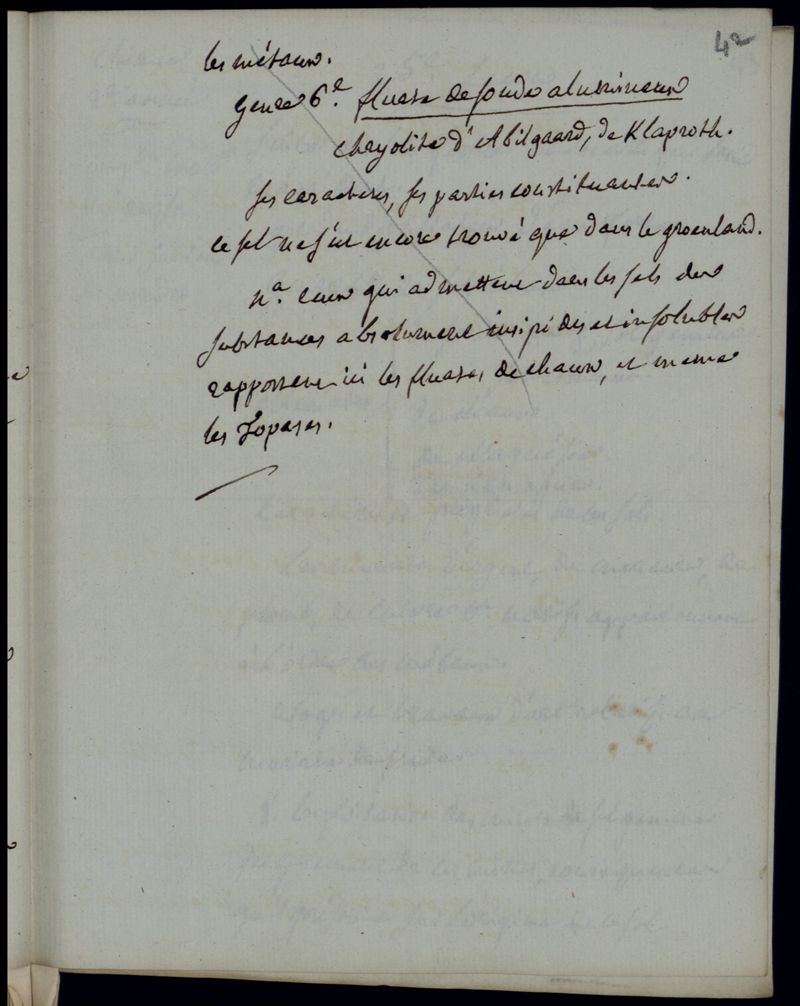 42
les métaux.
Genre 6.e fluate de soude alumineux
Chryolite d'Abilgaard, de Klaproth.
ses caracteres, ses parties constituantes.
ce sel ne s'est encore trouvé que dans le groenland.
n.a ceux qui admettent dans les sels des
substances absolument insipides et insolubles
rapportent ici les fluates de chaux, et meme
les Topases.